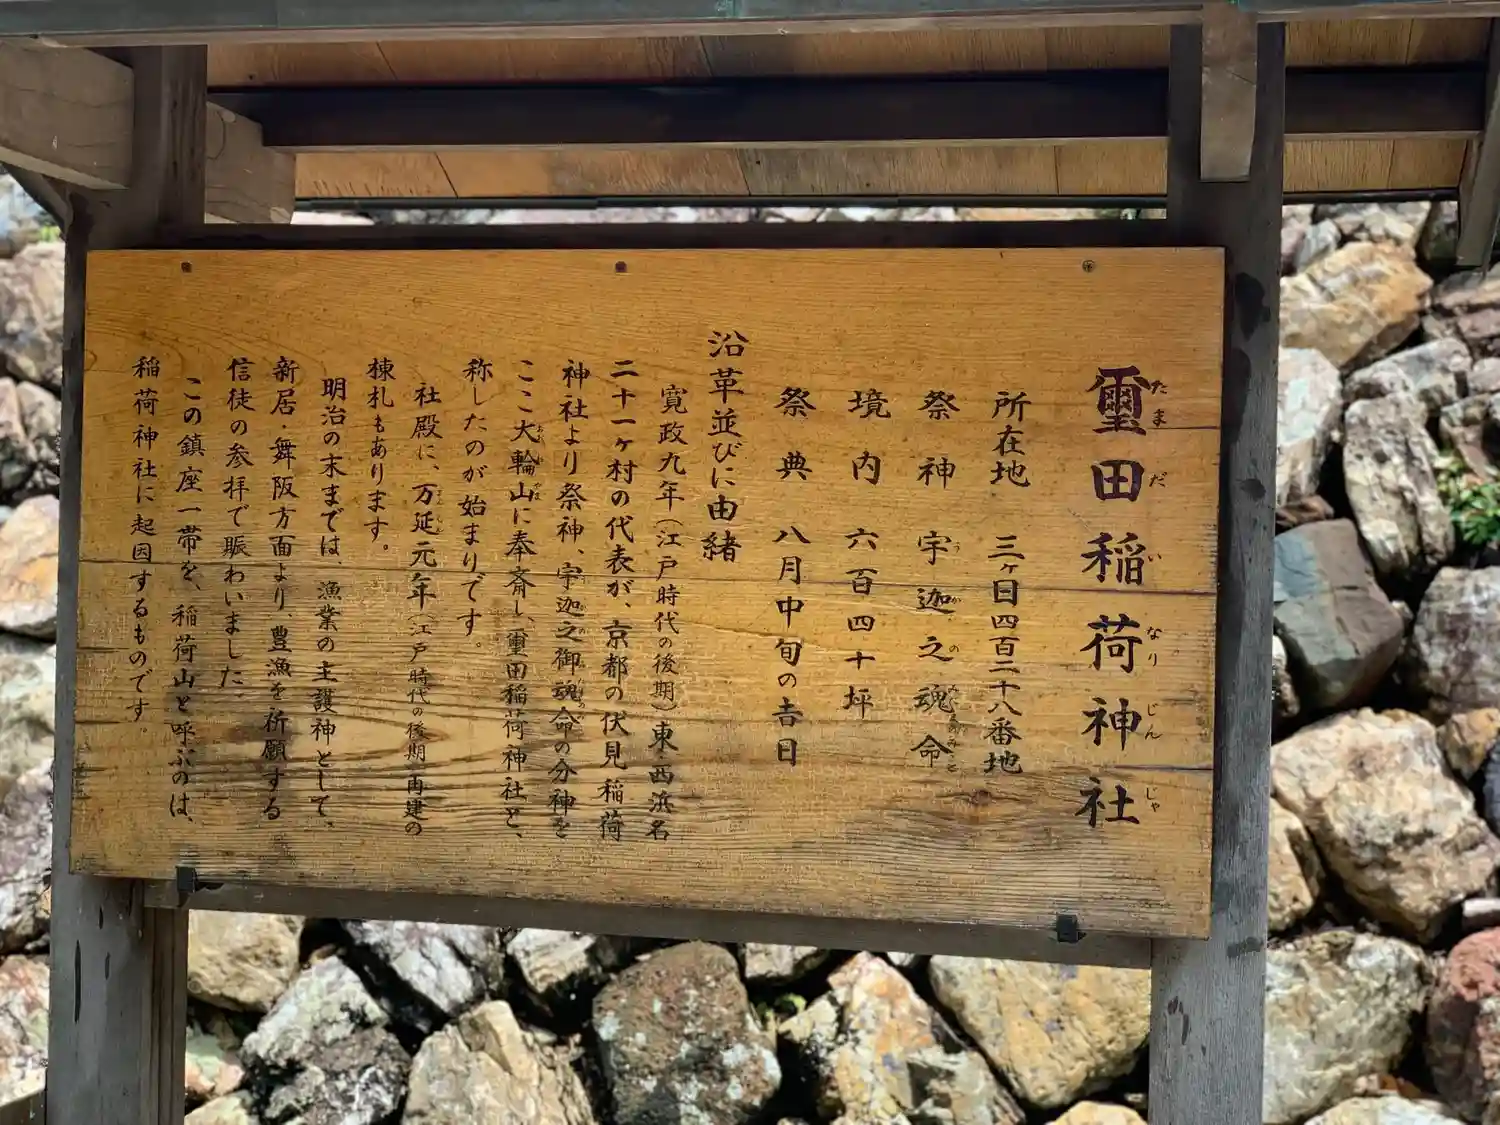 璽田稲荷神社
ただまいなりじんじゃ
所在地 三ヶ日四百二十八番地
祭神 宇迦之魂命
境内 六百四十坪
祭典 八月中旬の吉日
沿革並びに由緒
寛政九年(江戸時代の後期)東・西浜名
二十一ヶ村の代表が、京都の伏見稲荷
神社より祭神、宇迦之御魂命の分神を
ここ大輪山に奉斎し、璽田稲荷神社と、
称したのが始まりです。
社殿に、万延元年(江戸時代の後期)再建の
棟札もあります。
明治の末までは、漁業の主護神として、
新居・舞阪方面より、豊漁を祈願する
信徒の参拝で賑わいました。
この鎮座一帯を、稲荷山と呼ぶのは、
稲荷神社に起因するものです。